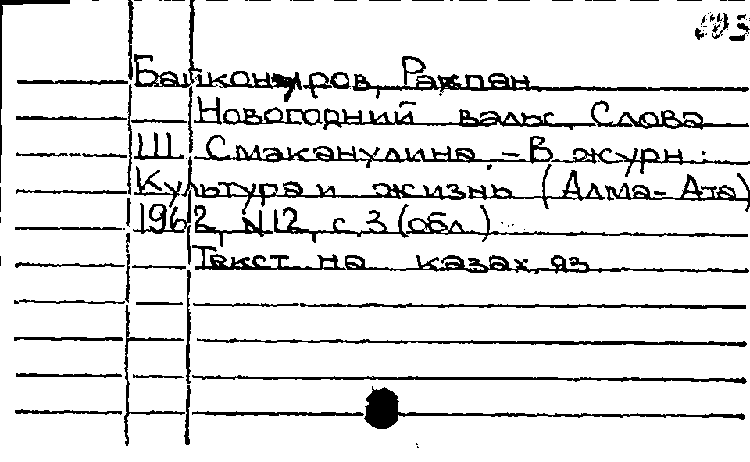 Байконуров, Ракпан.
Новогодний вальс. Слова
Ш. Смаканулина. - В журн.:
Культура и жизнь (Алма-Ата)
1962, N12, с. 3 (обл.)
Текст на казах. яз.